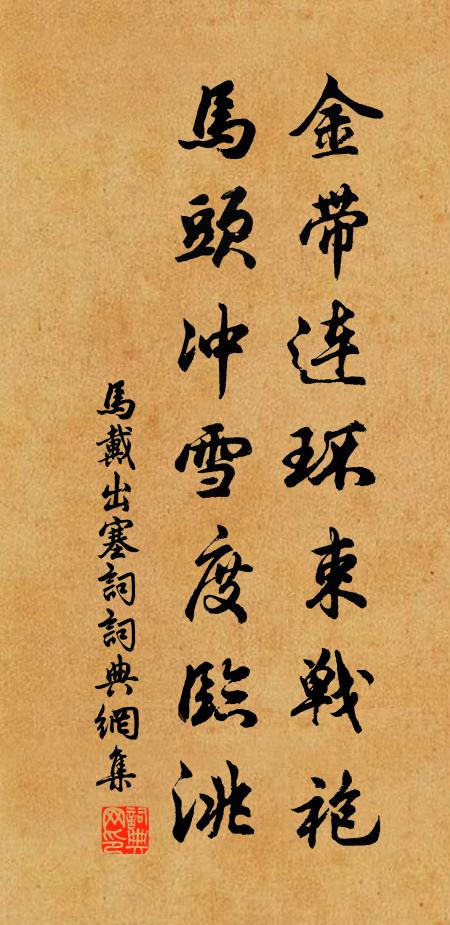 金带连环束戦袍
馬頭冲雪度臨洮
馬戴出塞詞詞典網集
詞典网印